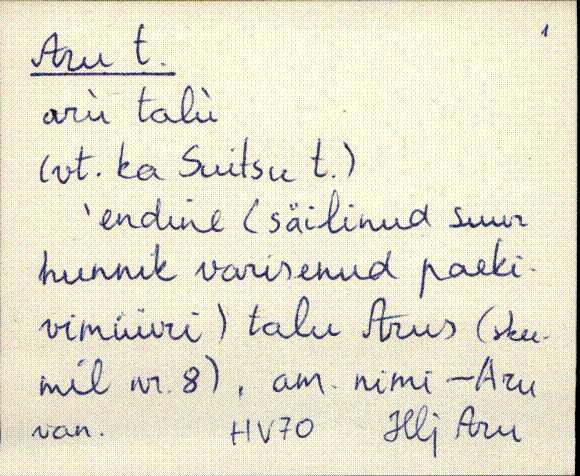 1
Aru t.
arù talù
(vt. ka Suitsu t.)
'endine (säilinud suur
hunnik varisenud paeki-
vimüüri) talu Arus (sku-
mil nr. 8), am. nimi – Aru
van. HV70 Hlj Aru